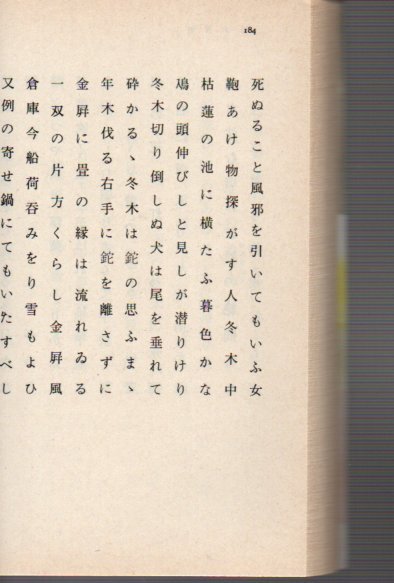 184
死ぬること風邪を引いてもいふ女
鞄あけ物探がす人冬木中
枯蓮の池に横たふ暮色かな
鳰の頭伸びしと見しが潜りけり
冬木切り倒しぬ犬は尾を垂れて
砕かるゝ冬木は鉈の思ふまゝ
年木伐る右手に鉈を離さずに
金屛に畳の縁は流れゐる
一双の片方くらし金屛風
倉庫今船荷呑みをり雪もよひ
又例の寄せ鍋にてもいたすべし